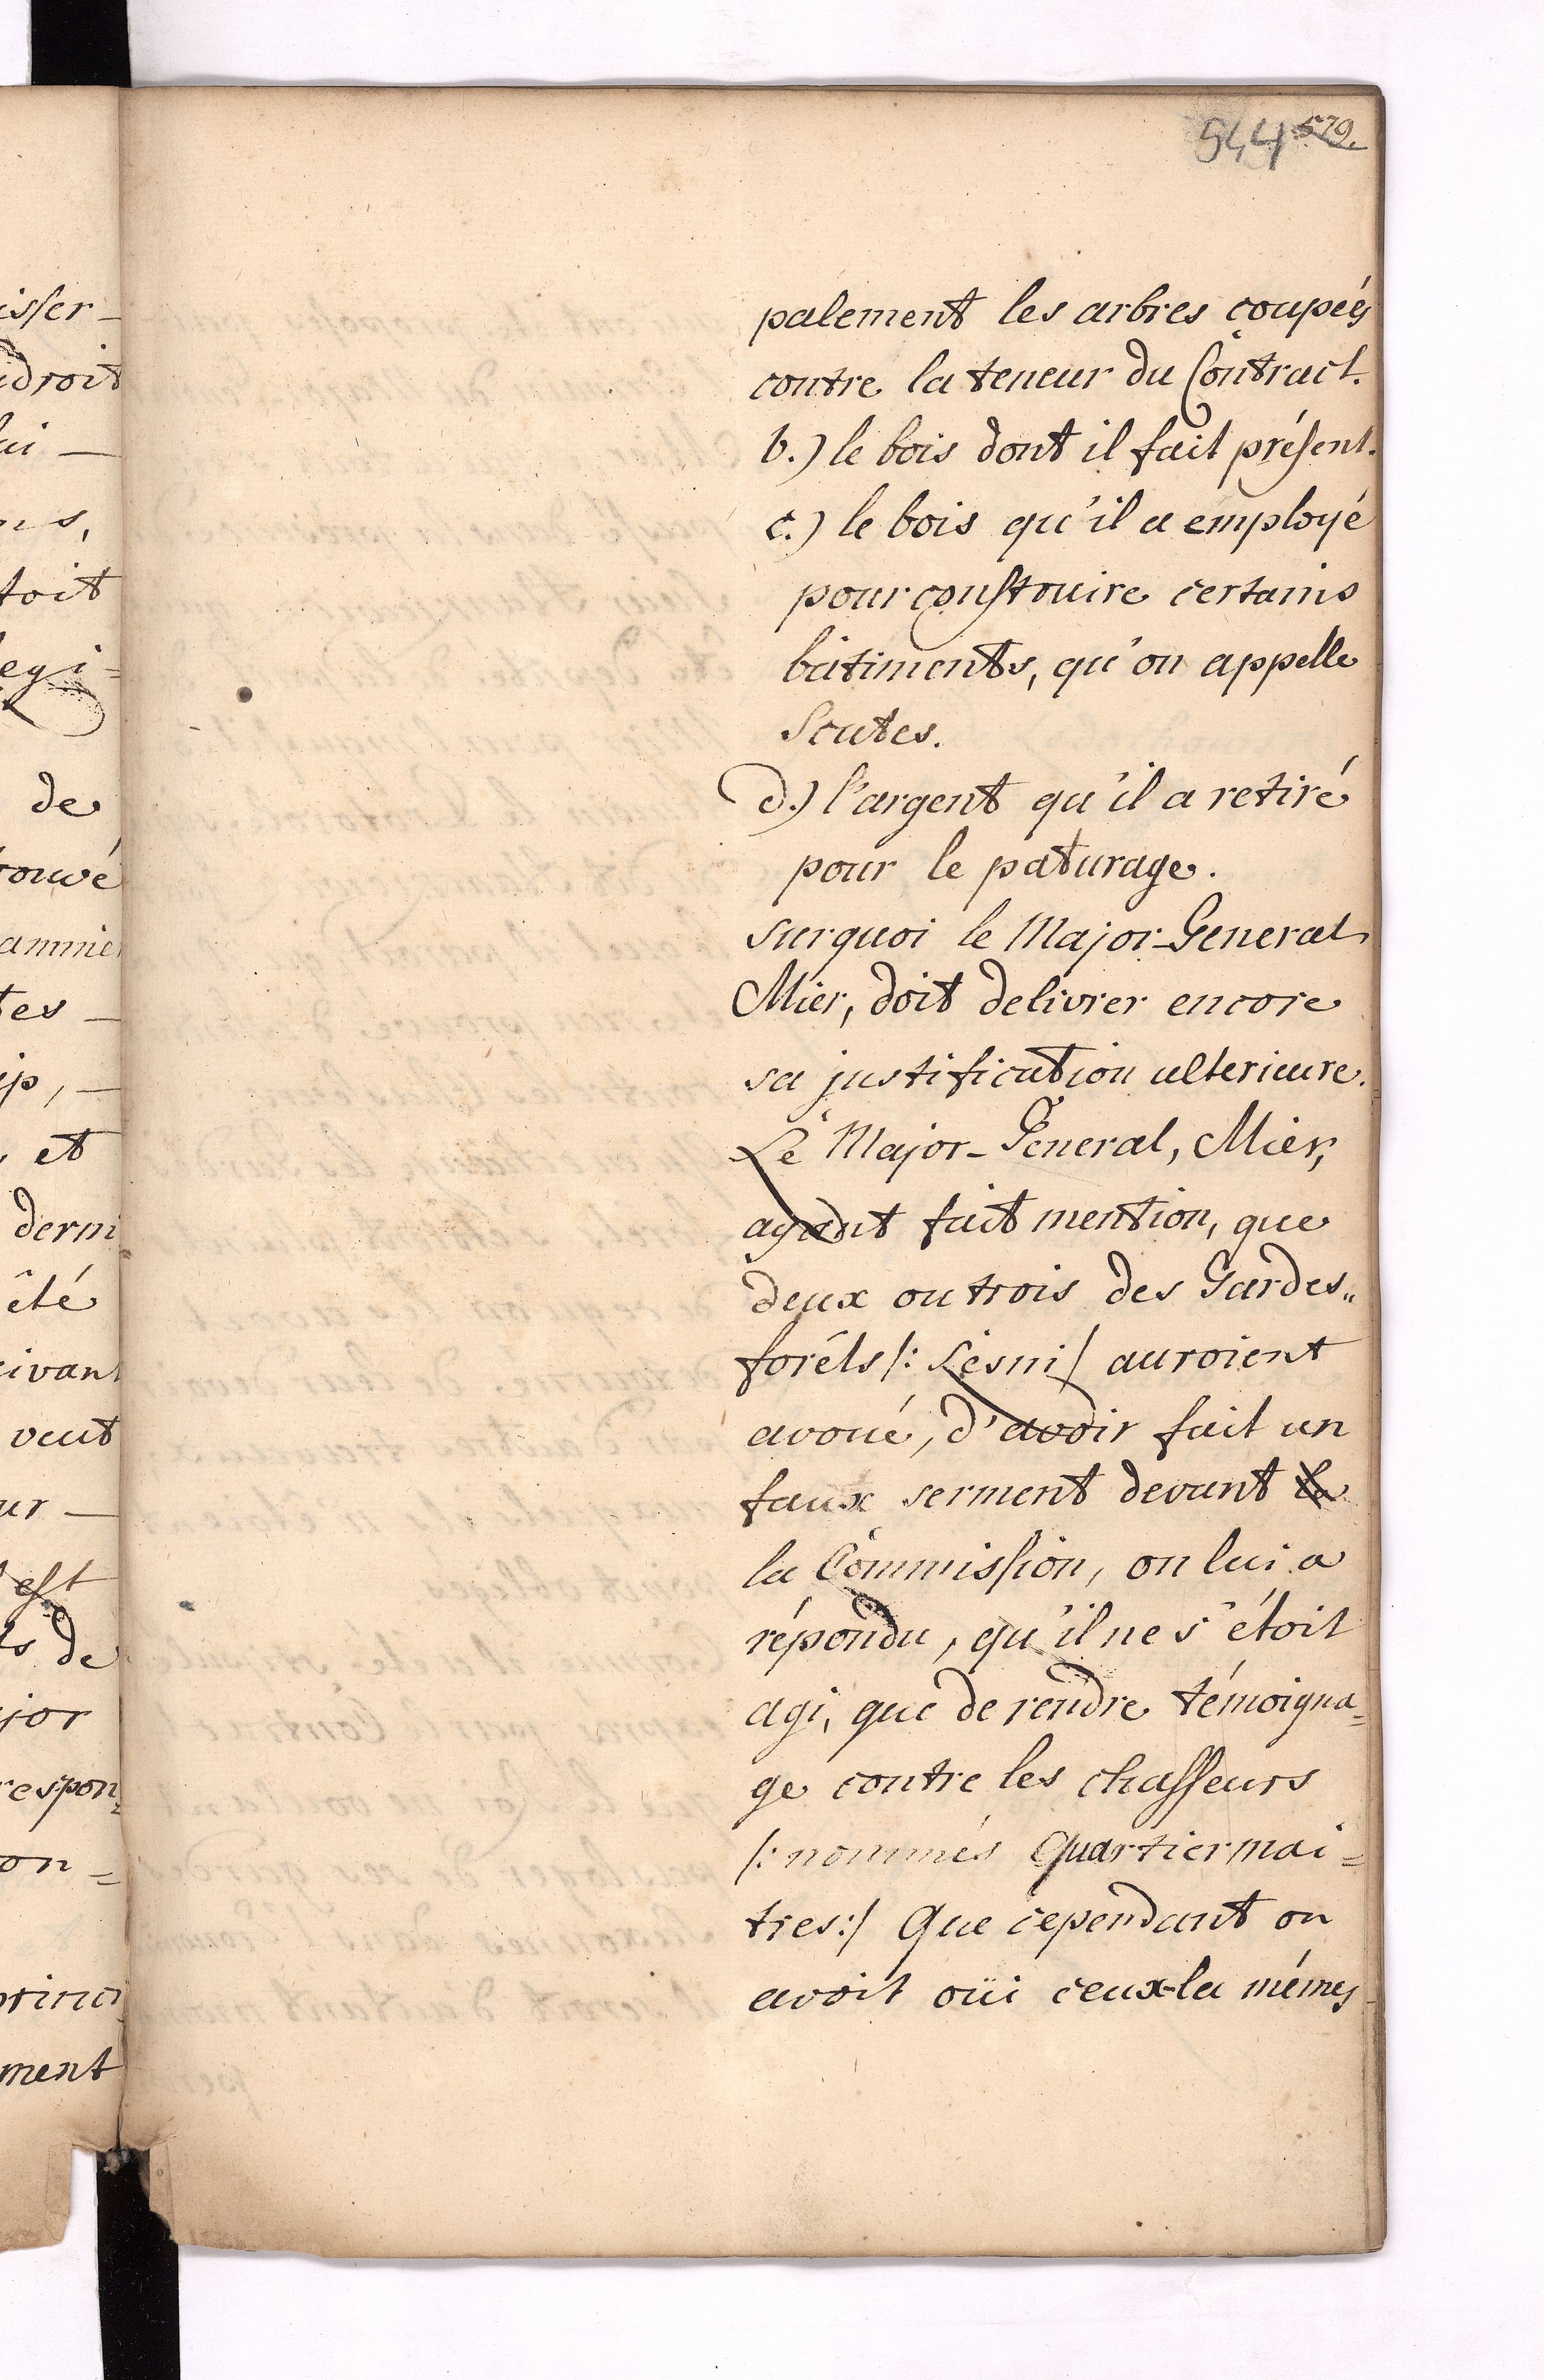 544 579.
palement les arbres coupées
contre la teneur du Contract.
b.) le bois dont il fait présent.
c.) le bois qu'il a employé
pour construire certains
bâtiments, qu'on appelle
Scutes.
d.) l'argent qu'il a retiré
pour le paturage.
surquoi le Major-General
Mier, doit delivrer encore
sa justification ulterieure.
Le Major-General, Mier,
ayant fait mention, que
deux ou trois des Gardes„
foréts /: Lesni / auroient
avoué, d'avoir fait un
faux serment devant la
la Commission, on lui a
répondu, qu'il ne s'étoit
agi, que de rendre témoigna=
ge contre les chasseurs
/: nommés Quartiermai=
tres:/ Que cependant on
avoit oüi ceux-la mémes
isser
droit
toit
de
rouvé
tes
et
derni
êté
ivant
veut
est
de
jor
respon
on=
princi
ment